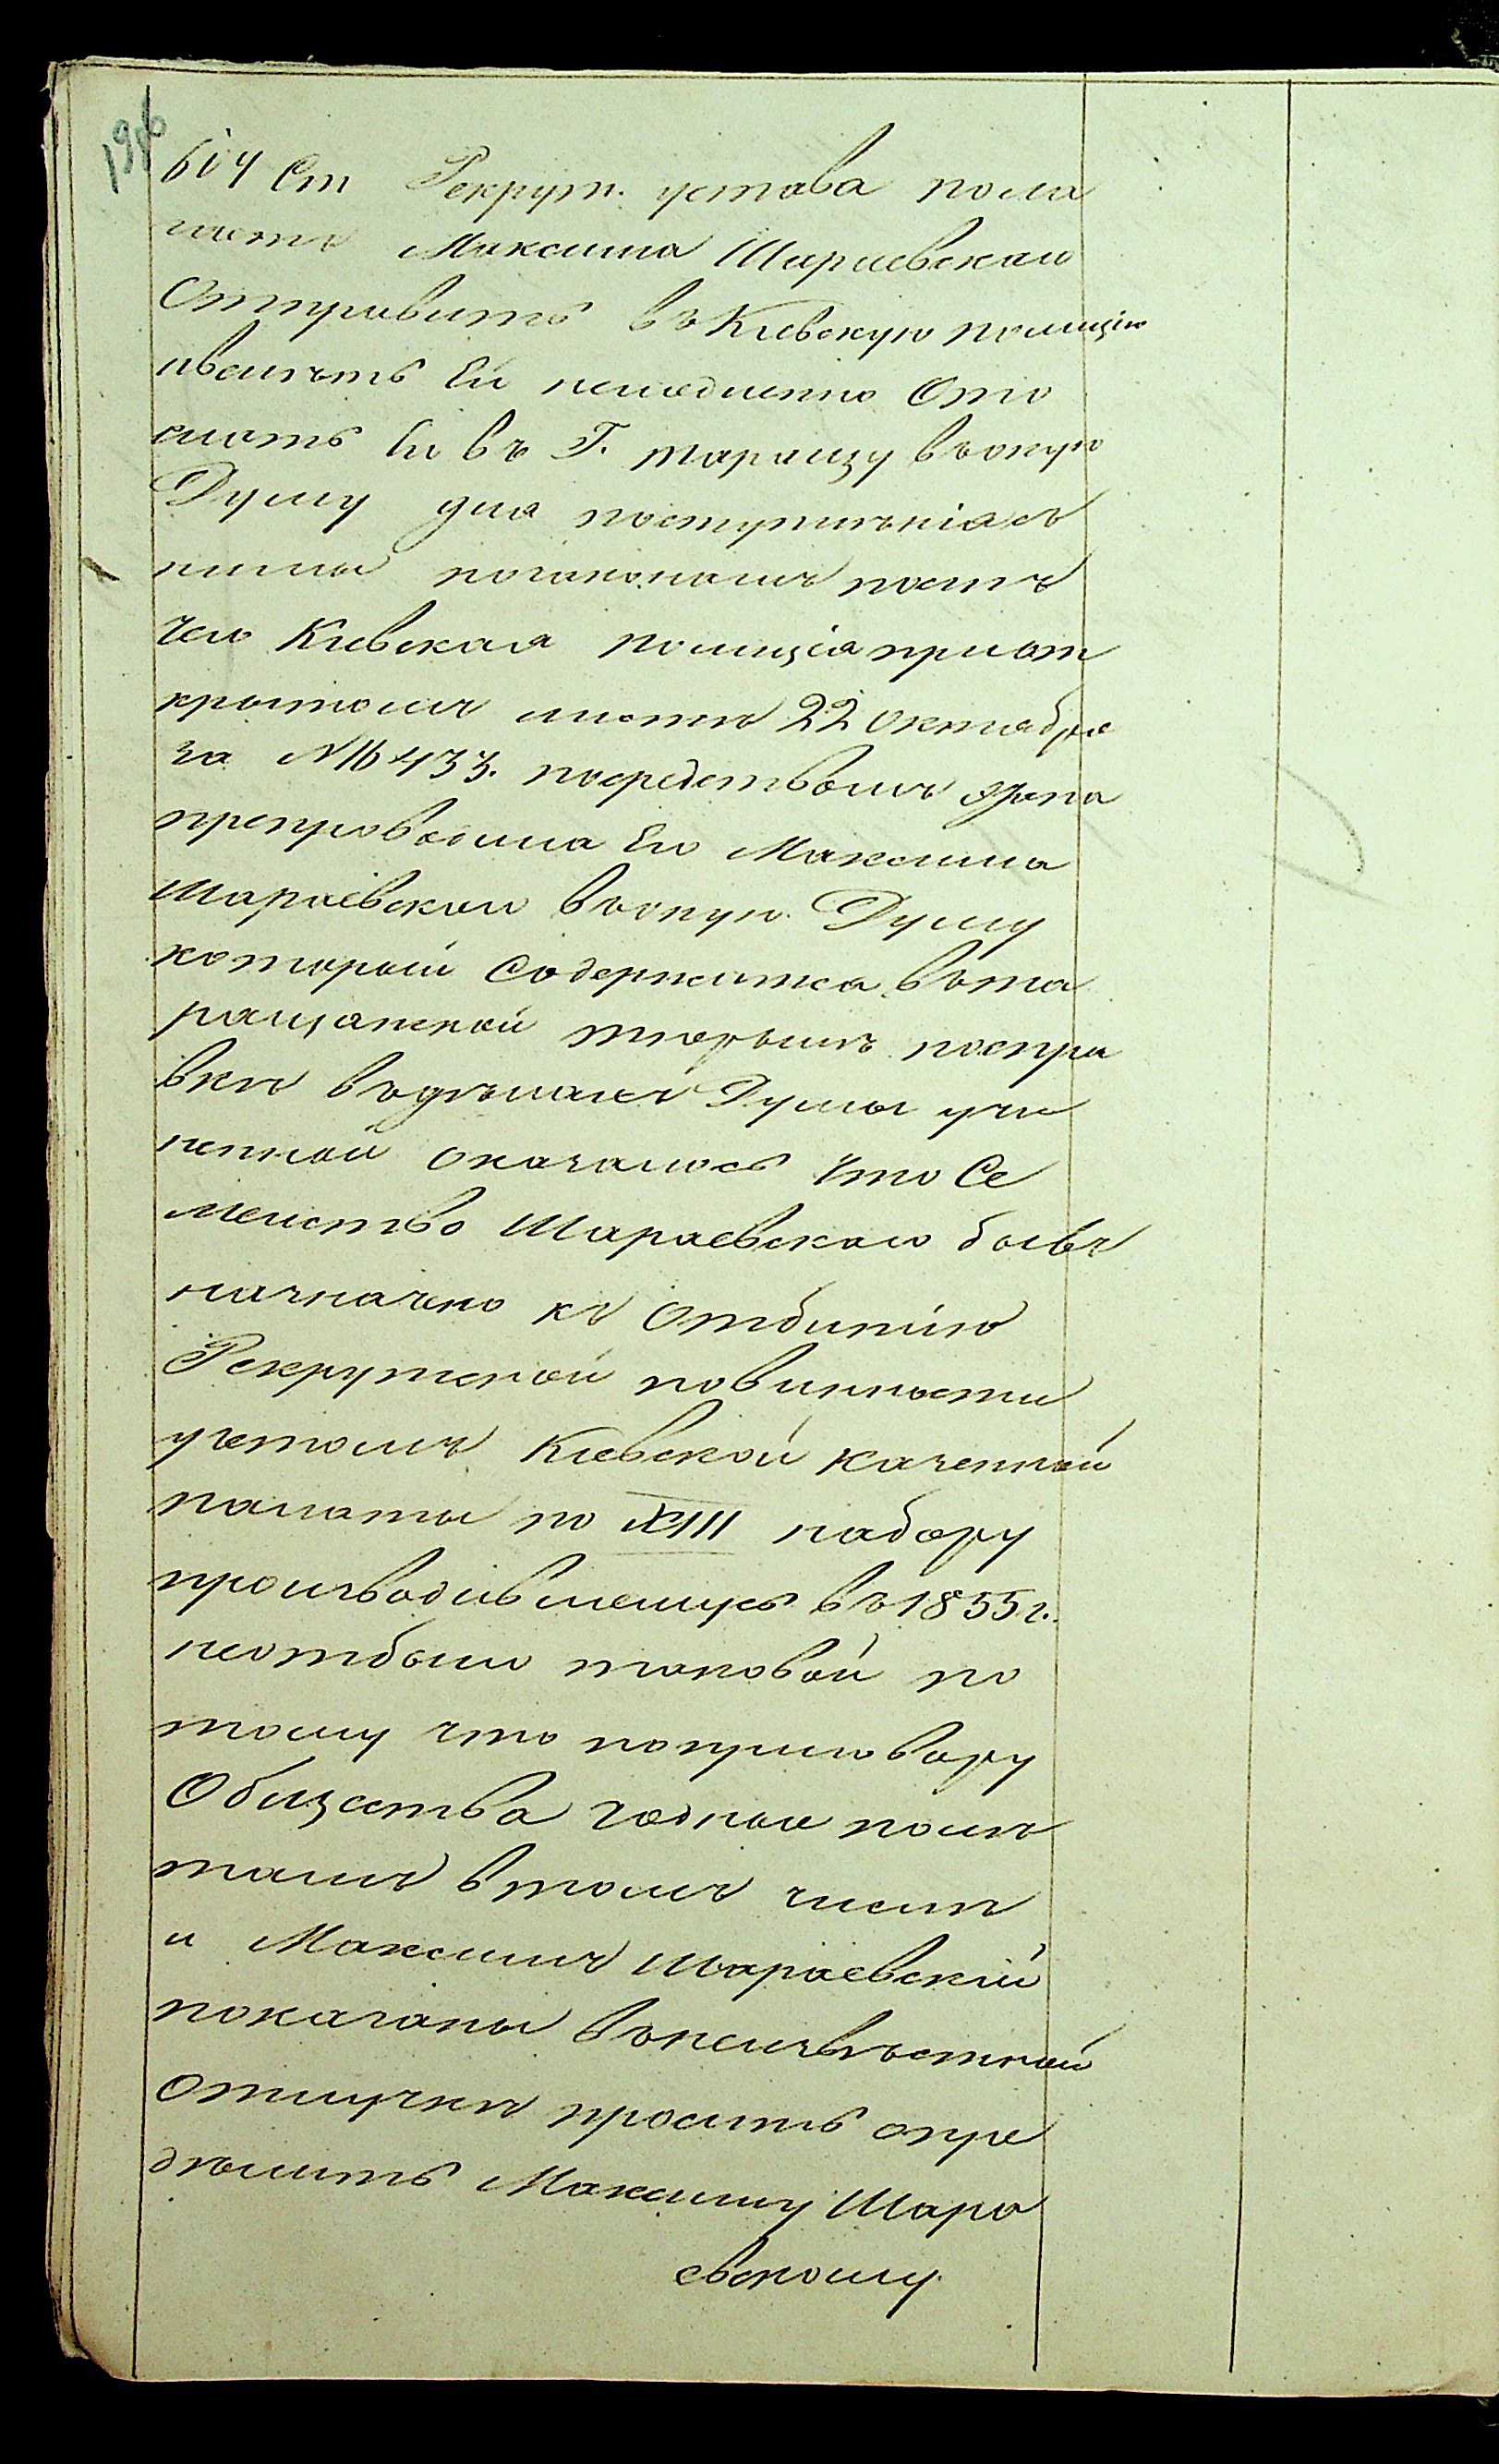 614 Ст Рекрут. устава пола
гаетъ Максима Шараевскаго
Отправить въ Кіевскую полицію
и велѣть Ей немедленно Ото
слать Его въ Г. таращу въ оную
Думу для поступленія съ
нимъ по законамъ послѣ
чего Кіевская полиція при от
крытомъ листѣ 22 октября
за № 16433. посредствомъ этапа
препроводила Его Максима
Шараевскаго въ оную Думу
который Содержится въ та
ращанской тюрьмѣ по спра
вкѣ въ дѣлахъ Думы учи
ненной оказалось что Се
мейство Шараевскаго бывъ
назначено къ Отбытію
Рекрутской повинности
учетомъ Кіевской казенной
палаты по XIII набору
производившемусь въ 1855 г.
не отбыло таковой по
тому что по приговору
Общества годные по лѣ
тамъ в томъ числѣ
и Максимъ Шараевскій
показаны въ неизвѣстной
Отлучкѣ проситъ опре
дѣлить Максиму Шара
евскому